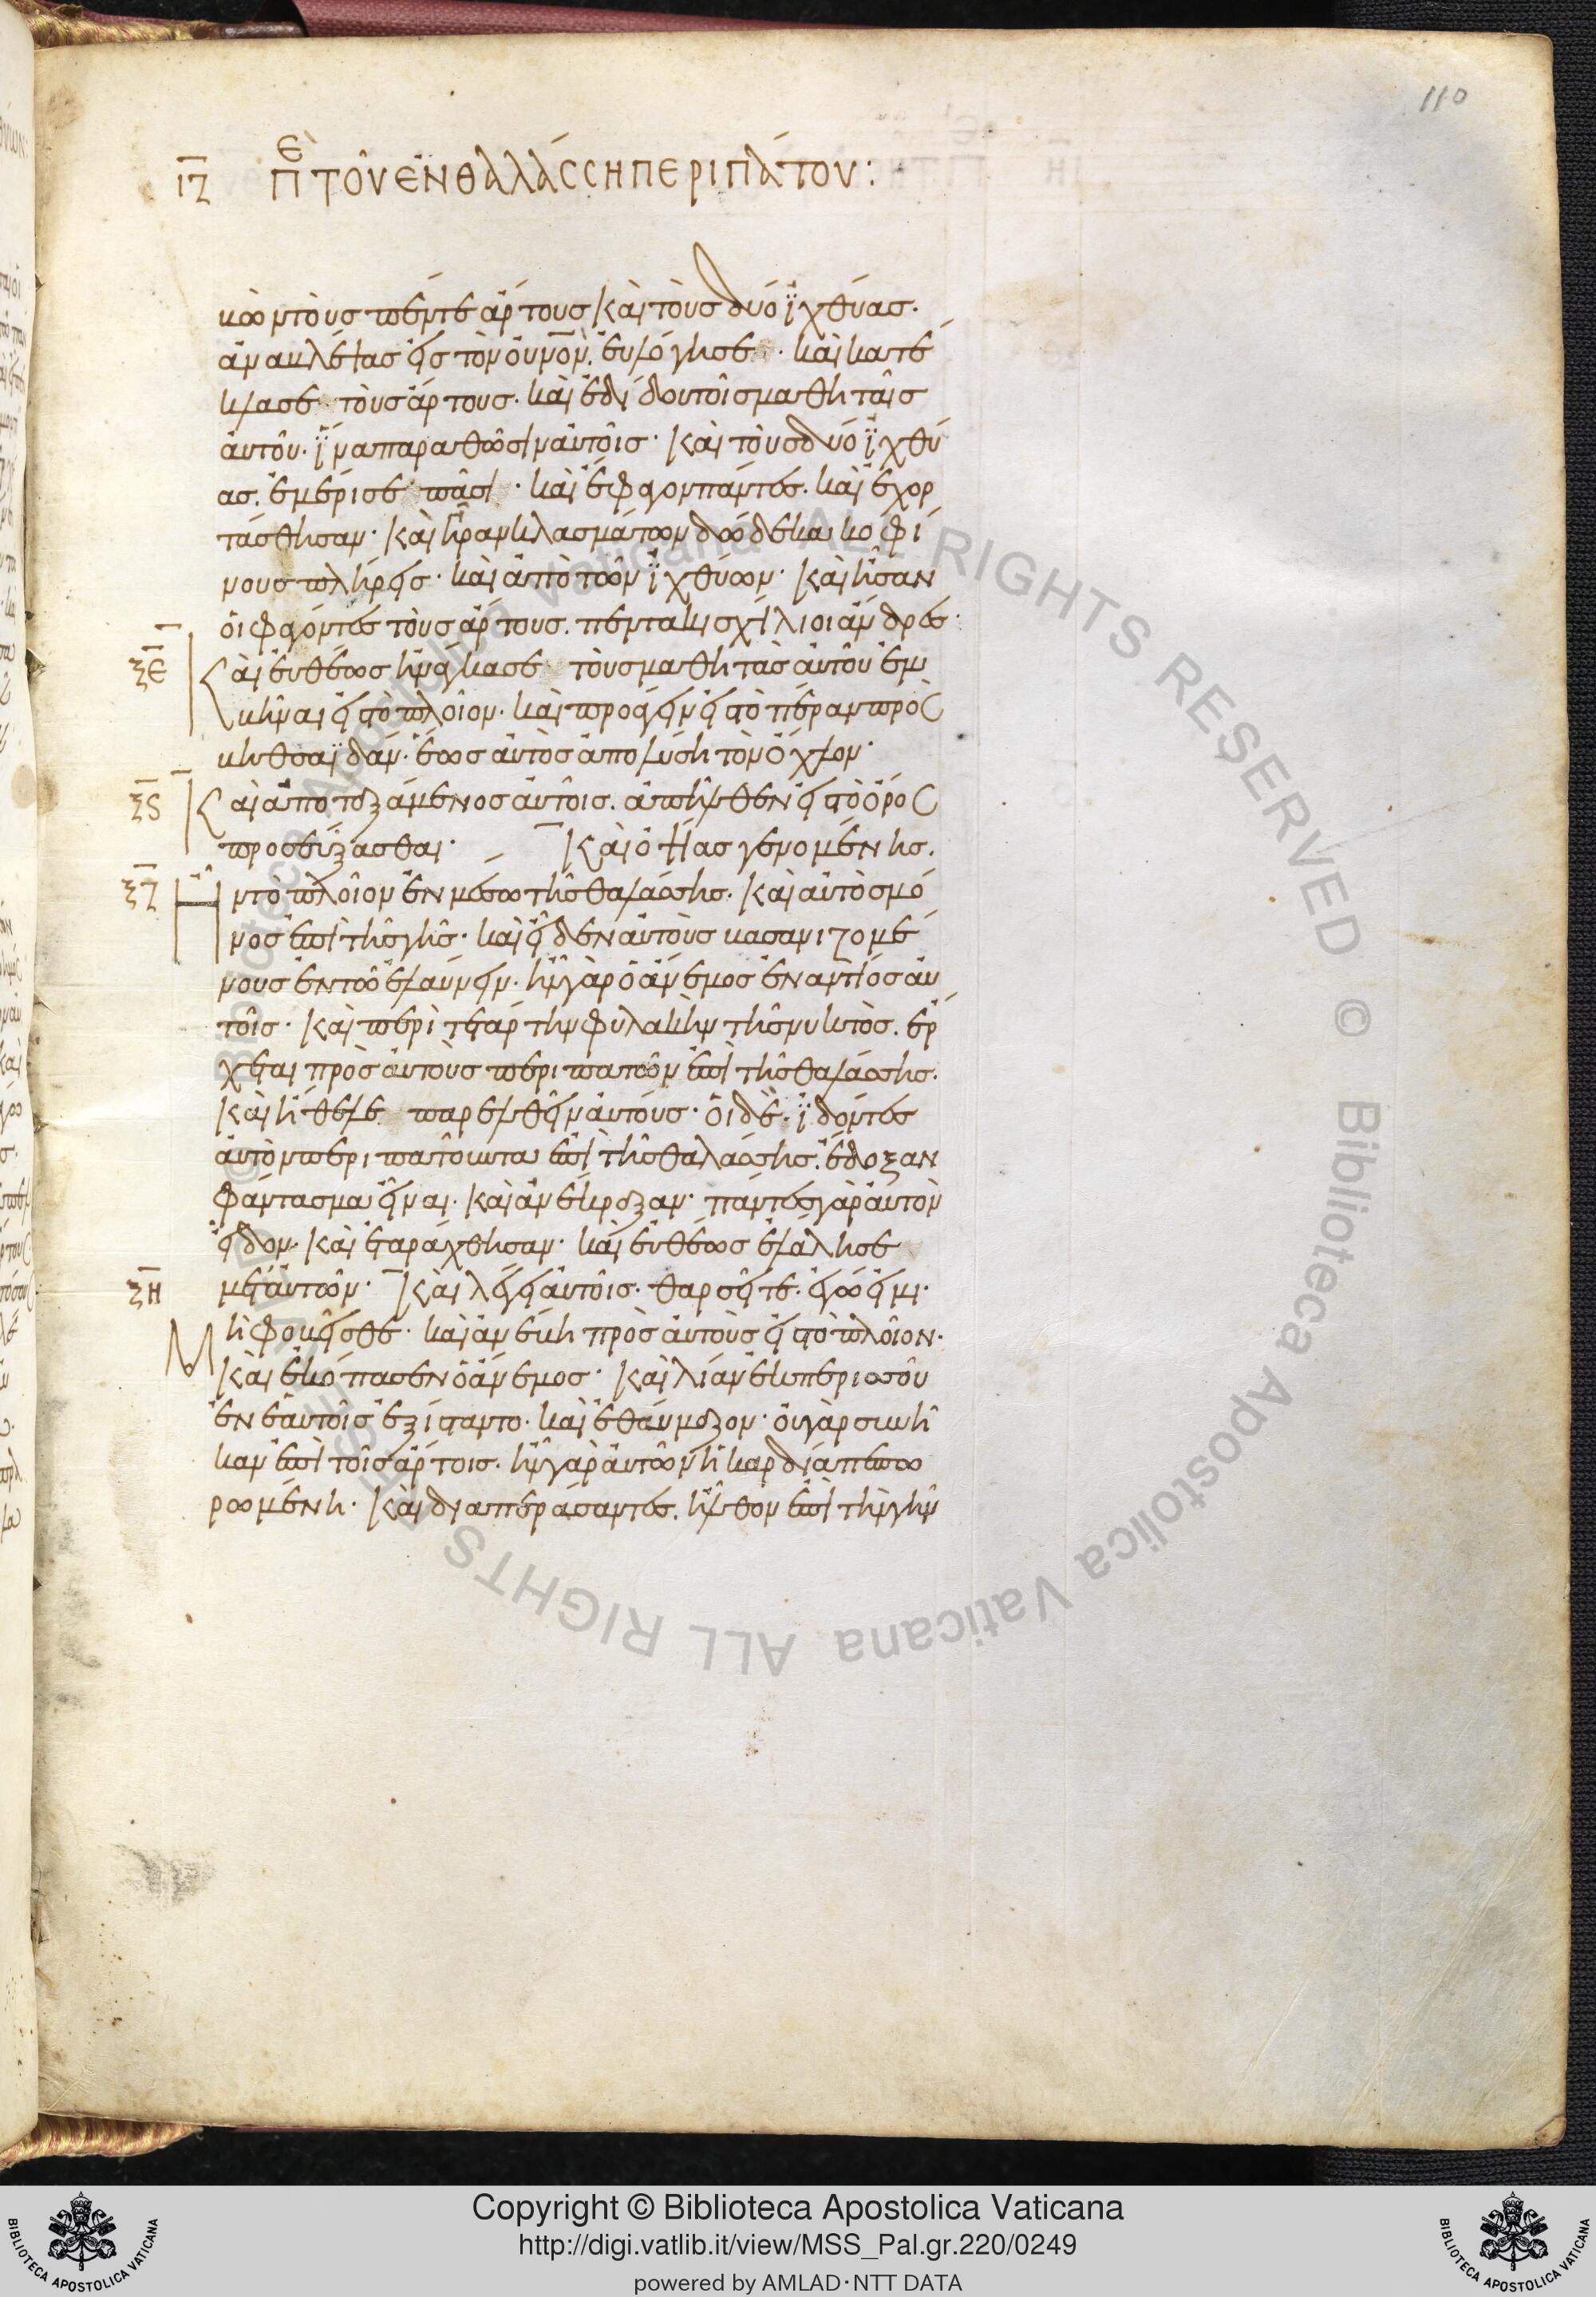 110
ιζ Πε τοῦ ἐν θαλάσση περιπάτου:
βὼν τοὺς πέντε ἄρτους καὶ τοὺς δύο ἰχθύας.
ἀναβλέψας εἰς τὸν οὐνον. εὐλόγησε· καὶ κατέ
κλασε τοὺς ἄρτους. καὶ ἐδίδου τοῖς μαθηταῖς
αὐτοῦ. ἵνα παραθῶσιν αὐτοῖς· καὶ τοὺς δύο ἰχθύ
ας. ἐμέρισε πᾶσι· καὶ ἔφαγον πάντες. καὶ ἐχορ
τάσθησαν· καὶ ἦραν κλασμάτων δώδεκα κοφί
νους πλήρεις· καὶ ἀπὸ τῶν ἰχθύων· καὶ ἦσαν
οἱ φαγόντες τοὺς ἄρτους. πεντακισχίλιοι ἄνδρες·
ξε Καὶ εὐθέως ἠνάγκασε τοὺς μαθητὰς αὐτοῦ ἐμ
βῆναι εἰς τὸ πλοῖον. καὶ προάγειν εἰς τὸ πέραν πρὸς
βηθσαϊδάν. ἕως αὐτὸς ἀπολύση τὸν ὄχλον·
ξς Καὶ ἀποταξάμενος αὐτοῖς. ἀπῆλθεν εἰς τὸ ὄρος
προσεύξασθαι· Καὶ ὀψίας γενομένης.
ξζ Ἦν τὸ πλοῖον ἐν μέσω τῆς θαλάσσης. καὶ αὐτὸς μό
νος ἐπὶ τῆς γῆς. καὶ εἶδεν αὐτοὺς βασανιζομέ
νους ἐν τῶ ἐλαύνειν. ἦν γὰρ ὁ ἄνεμος ἐναντίος αὐ
τοῖς· καὶ περὶ τετάρτην φυλακὴν τῆς νυκτὸς. ἔρ
χεται πρὸς αὐτοὺς περιπατῶν ἐπὶ τῆς θαλάσσης.
καὶ ἤθελε παρελθεῖν αὐτούς· οἱ δὲ. ἰδόντες
αὐτὸν περιπατοῦντα ἐπὶ τῆς θαλάσσης. ἔδοξαν
φάντασμα εἶναι. καὶ ἀνέκραξαν· πάντες γὰρ αὐτὸν
εἶδον. καὶ ἐταράχθησαν· καὶ εὐθέως ἐλάλησε
ξη μετ αὐτῶν· Καὶ λέγει αὐτοῖς. θαρσεῖτε. ἐγώ εἰμι.
Μὴ φοβεῖσθε· καὶ ἀνέβη πρὸς αὐτοὺς εἰς τὸ πλοῖον.
καὶ ἐκόπασεν ὁ ἄνεμος· καὶ λίαν ἐκ περισσοῦ
ἐν ἑαυτοῖς ἐξίσταντο. καὶ ἐθαύμαζον· οὐ γὰρ συνῆ
καν ἐπὶ τοῖς ἄρτοις. ἦν γὰρ αὐτῶν ἡ καρδία πεπω
ρωμένη· καὶ διαπεράσαντες. ἦλθον ἐπὶ τὴν γῆν
© Biblioteca Apostolica Vaticana ALL RIGHTS RESERVED © Biblioteca Apostolica Vaticana ALL RIGHTS RESERVED
Copyright © Biblioteca Apostolica Vaticana
http://digi.vatlib.it/view/MSS_Pal.gr.220/0249
powered by AMLAD·NTT DATA
BIBLIOTECA APOSTOLICA VATICANA
BIBLIOTECA APOSTOLICA VATICANA